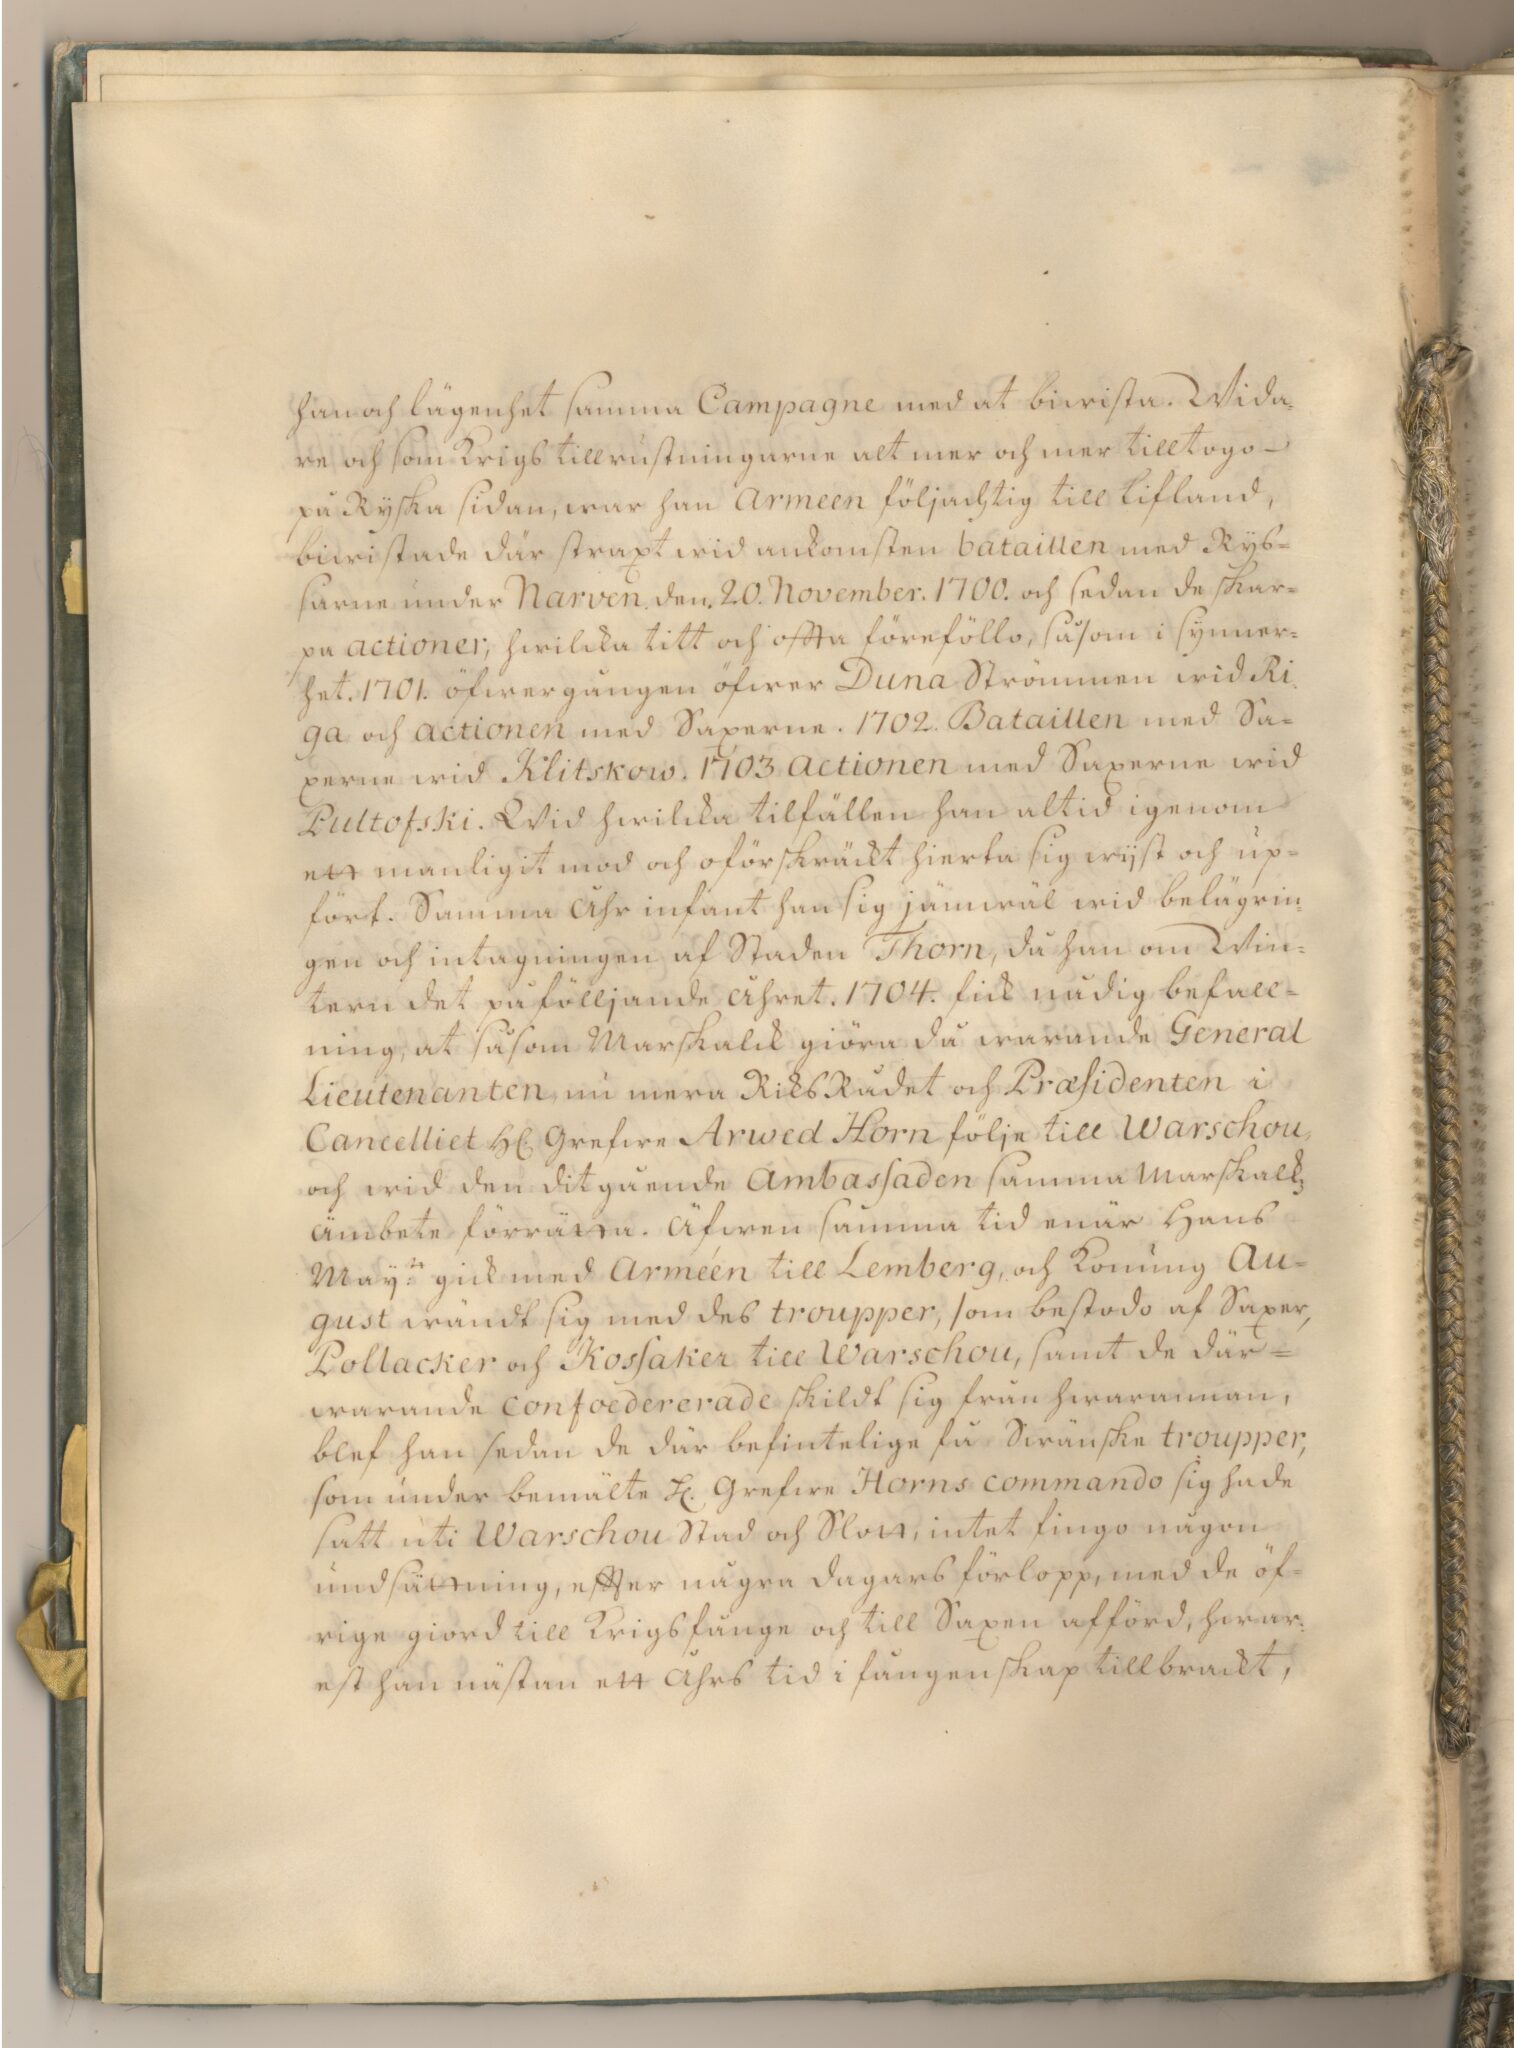 han och lägenhet samma Campagne med at biwista. Wida-
re och som Krigs tillrustningarne alt mer och mer tilltogo
på Ryska sidan, war han Armeen följachtig till Lifland,
biwistade där strapt wid ankomsten bataillen med Rys-
sarne under Narven den. 20. November. 1700. och sedan de skar-
pa actioner, hwilcka titt och offta föreföllo, såsom i synner-
het. 1701. öfwergången öfwer Duna Strömmen wid Ri-
ga och actionen med Saxerne. 1702. Bataillen med Sa-
xerne wid Klitskow. 1703 Actionen med Saxerne wid
Pultofski. Wid hwilcka tilfällen han altid igenom
ett manligit mod och oförskräckt hierta sig wijst och up-
fört. Samma Åhr infant han sig jämwäl wid belägrin-
gen och intagningen af Staden Thorn, då han om Win-
tern det påfölljande åhret. 1704. fick nådig befall-
ning, at såsom Marskalck giöra då warande General
Lieutenanten, nu mera RiksRådet och Præsidenten i
Cancelliet H. Grefwe Arwed Horn följe till Warschou,
och wid den ditgående Ambassaden samma Marskalks
ämbete förrätta. Äfwen samma tid enär Hans
May:tt gick med Arméen till Lemberg, och Konung Au-
gust wändt sig med des troupper, som bestodo af Saxer,
Pollacker och Kossaker till Warschou, samt de där-
warande confoedererade skildt sig från hwarannan,
blef han sedan de där befintelige få Swänske troupper,
som under bemälte H. Grefwe Horns commando sig hade
satt uti Warschou Stad och Slott, intet fingo någon
undsättning, effter några dagars förlopp, med de öf-
rige giord till Krigsfånge och till Saxen afförd, hwar-
est han nästan ett Åhrs tid i fångenskap tillbrackt,